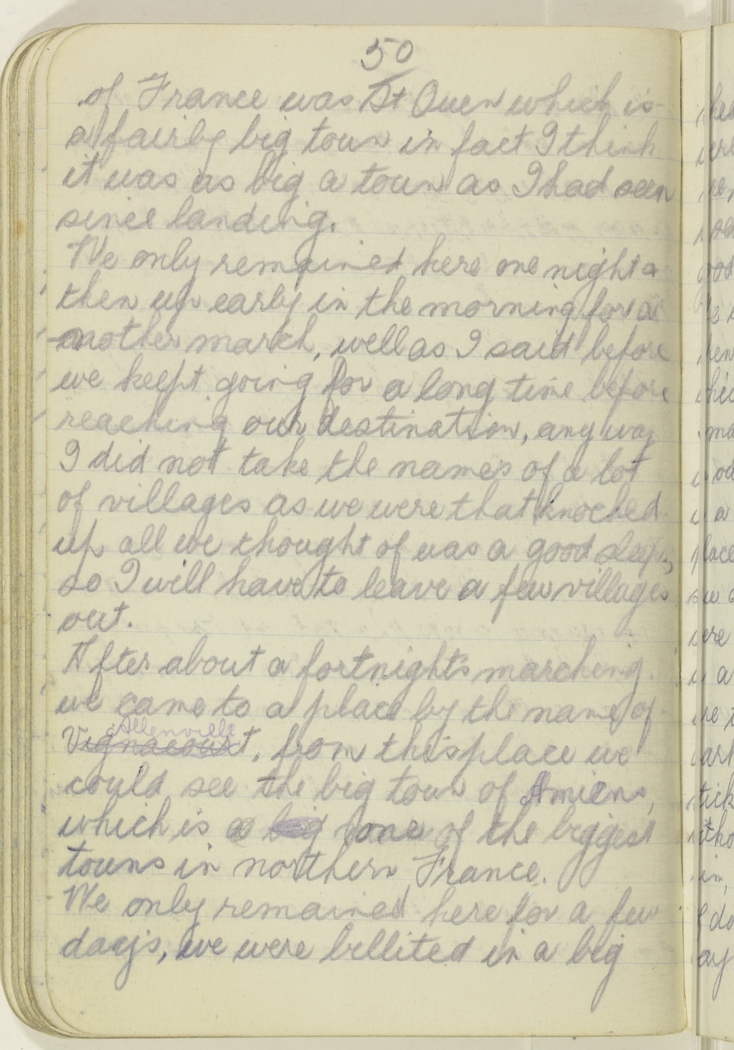 50
of France was St Ouen which is
a fairly big town in fact I think
it was as big a town as I had seen
since landing.
We only remained here one night &
then up early in the morning for a
nother march, well as I said before
we keept going for a long time before
reaching our destination, any way
I did not take the names of a lot
of villages as we were that knocked
up all we thought of was a good sleep,
so I will have to leave a few villages
out.
After about a fortnights marching
we came to a place by the name of
Allenville
Vignacourt, from this place we
could see the big town of Amiens,
which is a big one of the biggest
towns in northern France.
We only remained here for a few
days, we were billited in a big